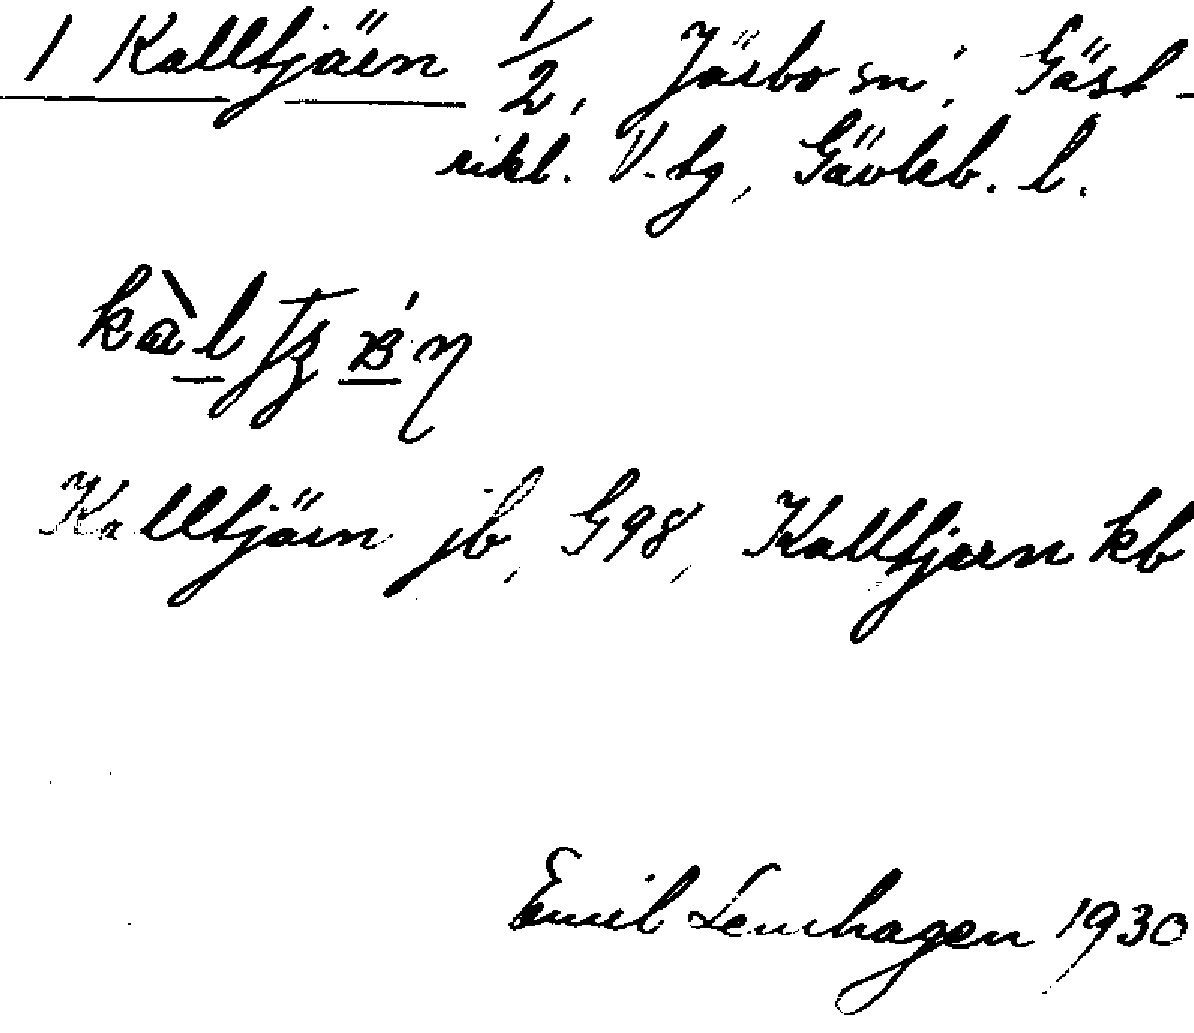 1 Kalltjärn 1/2, Järbo sn, Gäst-
rikl. V. tg, Gävleb. l.
Kalltjärn jb, G98, Kalltjern kb
Emil Lenhagen 1930